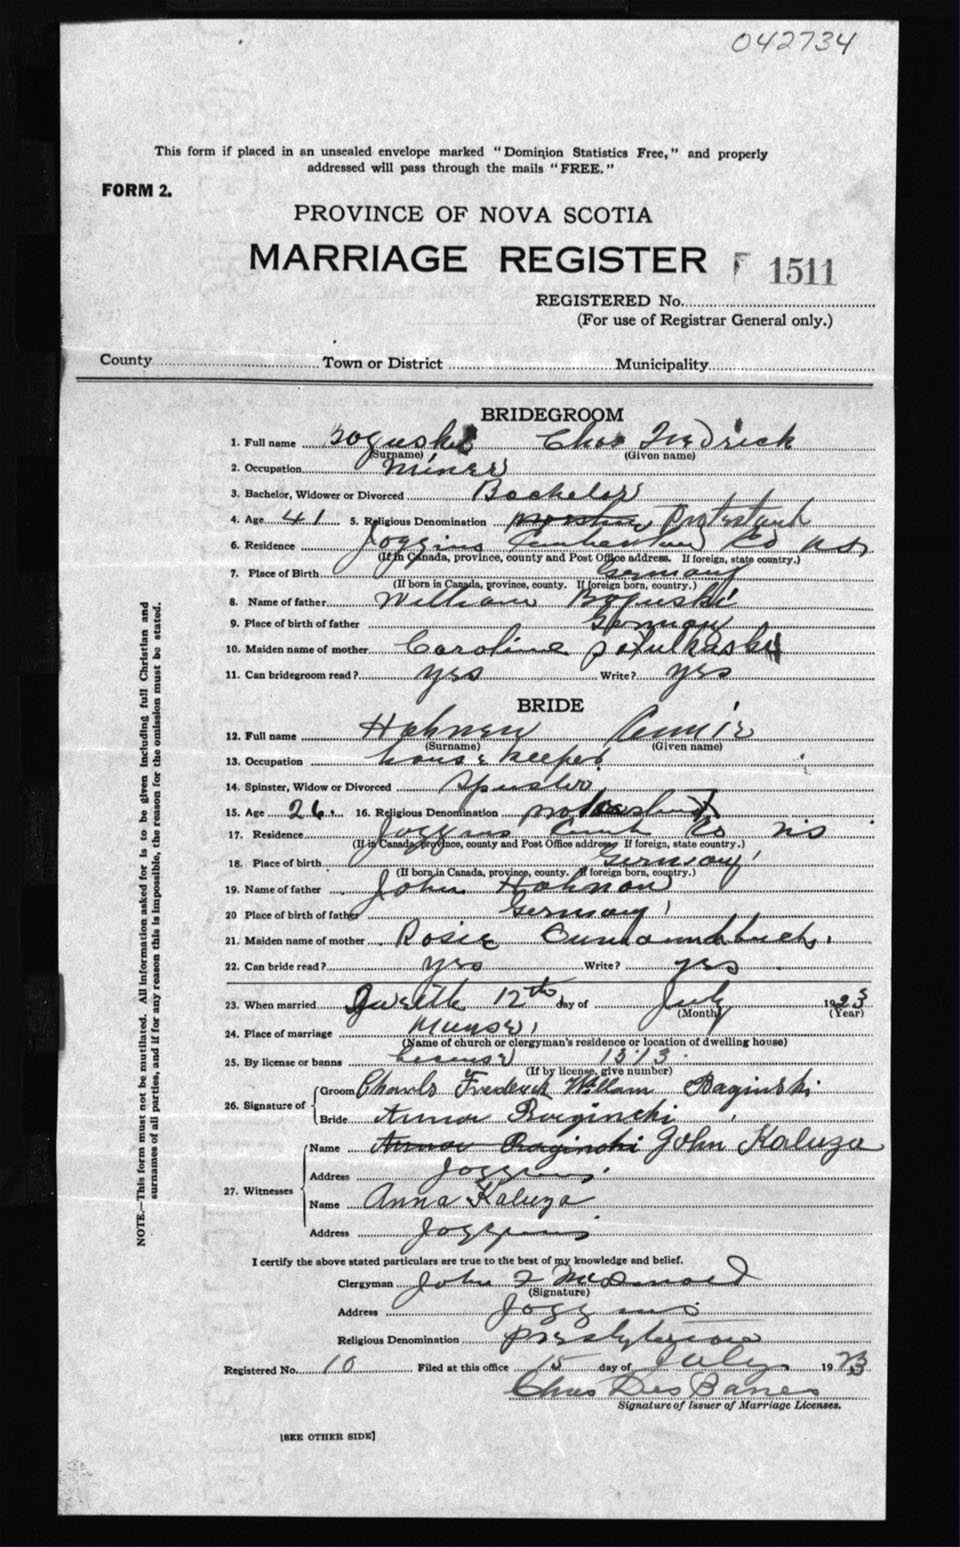 042734
This form if placed in an unsealed envelope marked "Dominion Statistics Free," and properly
addressed will pass through the mails "FREE."
FORM 2.
PROVINCE OF NOVA SCOTIA
MARRIAGE REGISTER F 1511
REGISTERED No.
(For use of Registrar General only.)
County Town or District Municipality
BRIDEGROOM
1. Full name Boguski Chas Fredrick
(Surname) (Given name)
2. Occupation miner
3. Bachelor, Widower or Divorced Bachelor
4. Age 41 5. Religious Denomination Protestant
6. Residence Joggins Cumberland Co NS
(If in Canada, province, county and Post Office address. If foreign, state country.)
7. Place of Birth Germany
(If born in Canada, province, county. If foreign born, country.)
8. Name of father William Boguski
9. Place of birth of father Germany
10. Maiden name of mother Caroline
11. Can bridegroom read? yes Write? yes
BRIDE
12. Full name Hohnen Annie
(Surname) (Given name)
13. Occupation house keeper
14. Spinster, Widow or Divorced Spinster
15. Age 26 16. Religious Denomination
17. Residence Joggins Cumb Co NS
(If in Canada, province, county and Post Office address. If foreign, state country.)
18. Place of birth Germany
(If born in Canada, province, county. If foreign born, country.)
19. Name of father John Hohnan
20 Place of birth of father Germany
21. Maiden name of mother Rosie
22. Can bride read? yes Write? yes
23. When married 12th day of July 1923
(Month) (Year)
24. Place of marriage Manse
(Name of church or clergyman's residence or location of dwelling house)
25. By license or banns license 1513
(If by license, give number)
26. Signature of Groom Charls Frederick Willam Baginski
Bride Anna Baginski
27. Witnesses Name Anna Baginski John Kaluza
Address Joggins
Name Anna Kaluza
Address Joggins
I certify the above stated particulars are true to the best of my knowledge and belief.
Clergyman John McDonald
(Signature)
Address Joggins
Religious Denomination Presbyterian
Registered No. 10 Filed at this office 15 day of July 1923
Chas DesBarres
Signature of Issuer of Marriage Licenses.
[SEE OTHER SIDE]
NOTE.—This form must not be mutilated. All information asked for is to be given including full Christian and
surnames of all parties, and if for any reason this is impossible, the reason for the omission must be stated.